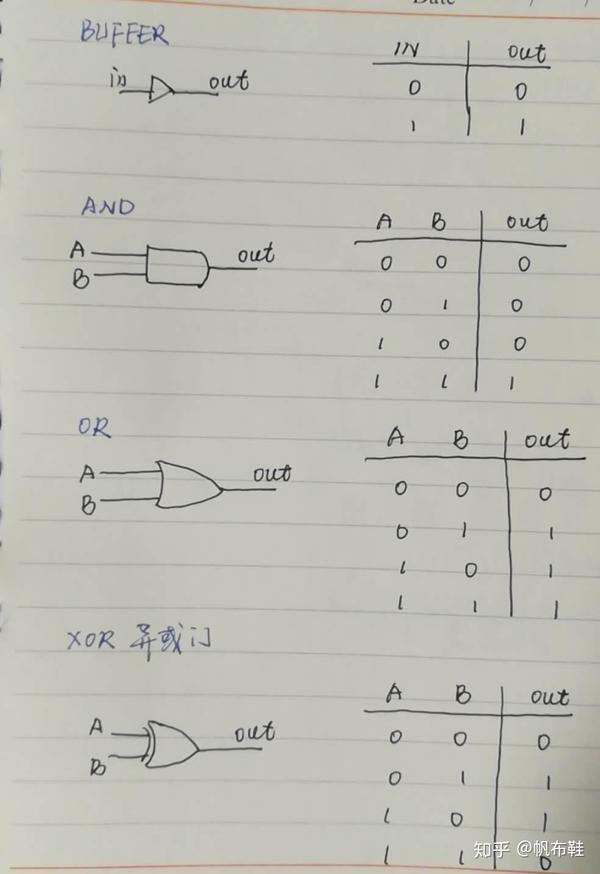 Date / /
BUFFER
in out
IN out
0 0
1 1
AND
A B out
A
B
out
0 0 0
0 1 0
1 0 0
1 1 1
OR
A B out
A
B
out
0 0 0
0 1 1
1 0 1
1 1 1
XOR 异或门
A B out
A
B
out
0 0 0
0 1 1
1 0 1
1 1 0
知乎 @帆布鞋